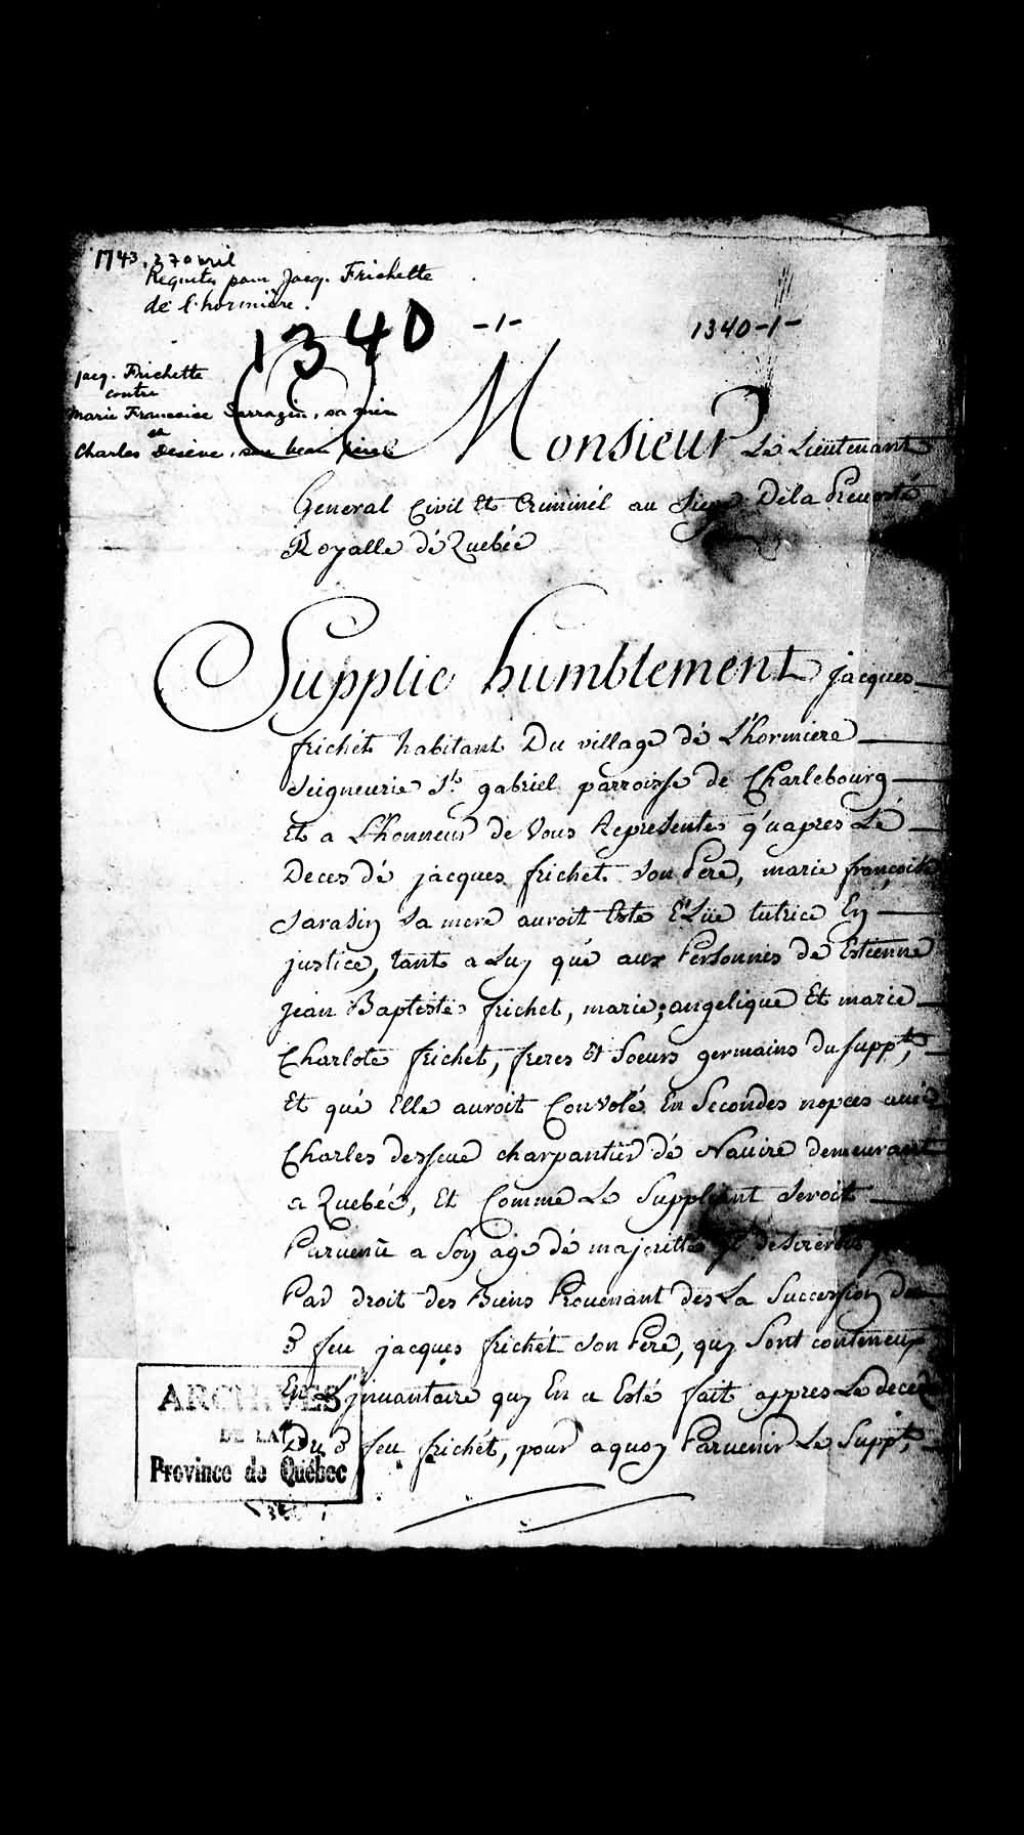 1743. 27 avril
Requete pour Jacq. Frichette
de l'hormière.
1340 -1-
1340-1-
Jacq. Frichette
contre
Marie Francoise Sarrazin, sa mère
et
Charles Desève, son beau père
Monsieur Le Lieutenant
General Civil Et Criminél au Siege Dela Prevosté
Royalle dé Quebéc
Supplie humblement jacques
frichét habitant Du village dé L'hormiere
Seigneurie St. gabriel parroisse de Charlebourg
Et a L'honneur de Vous Representer q'uapres Lé
Deces dé jacques frichet son Pere, marie françoise
Sarasin sa mere auroit Esté Elüe tutrice En
justice, tant a Luy qué aux Personnes de Estienne
Jean Baptiste frichet, marie, angelique Et marie
Charlote frichet, freres Et Soeurs germains du suppt,
Et qué Elle auroit Convolé En Secondes nopces avéc
Charles desseve charpantier dé Navire demeurant
a Quebéc, Et Comme Le Suppliant seroit
Parvenü a Son age dé majoritté il desireroit
Par droit des Biens Provenant des La Succession du
d feu jacques frichét son Pere, quy Sont conteneux
En L'jnvantaire quy En a Esté fait appres Le deces
Du d feu frichét, pour aquoy Parvenir Le Suppt,
ARCHIVES
DE LA
Province de Québec